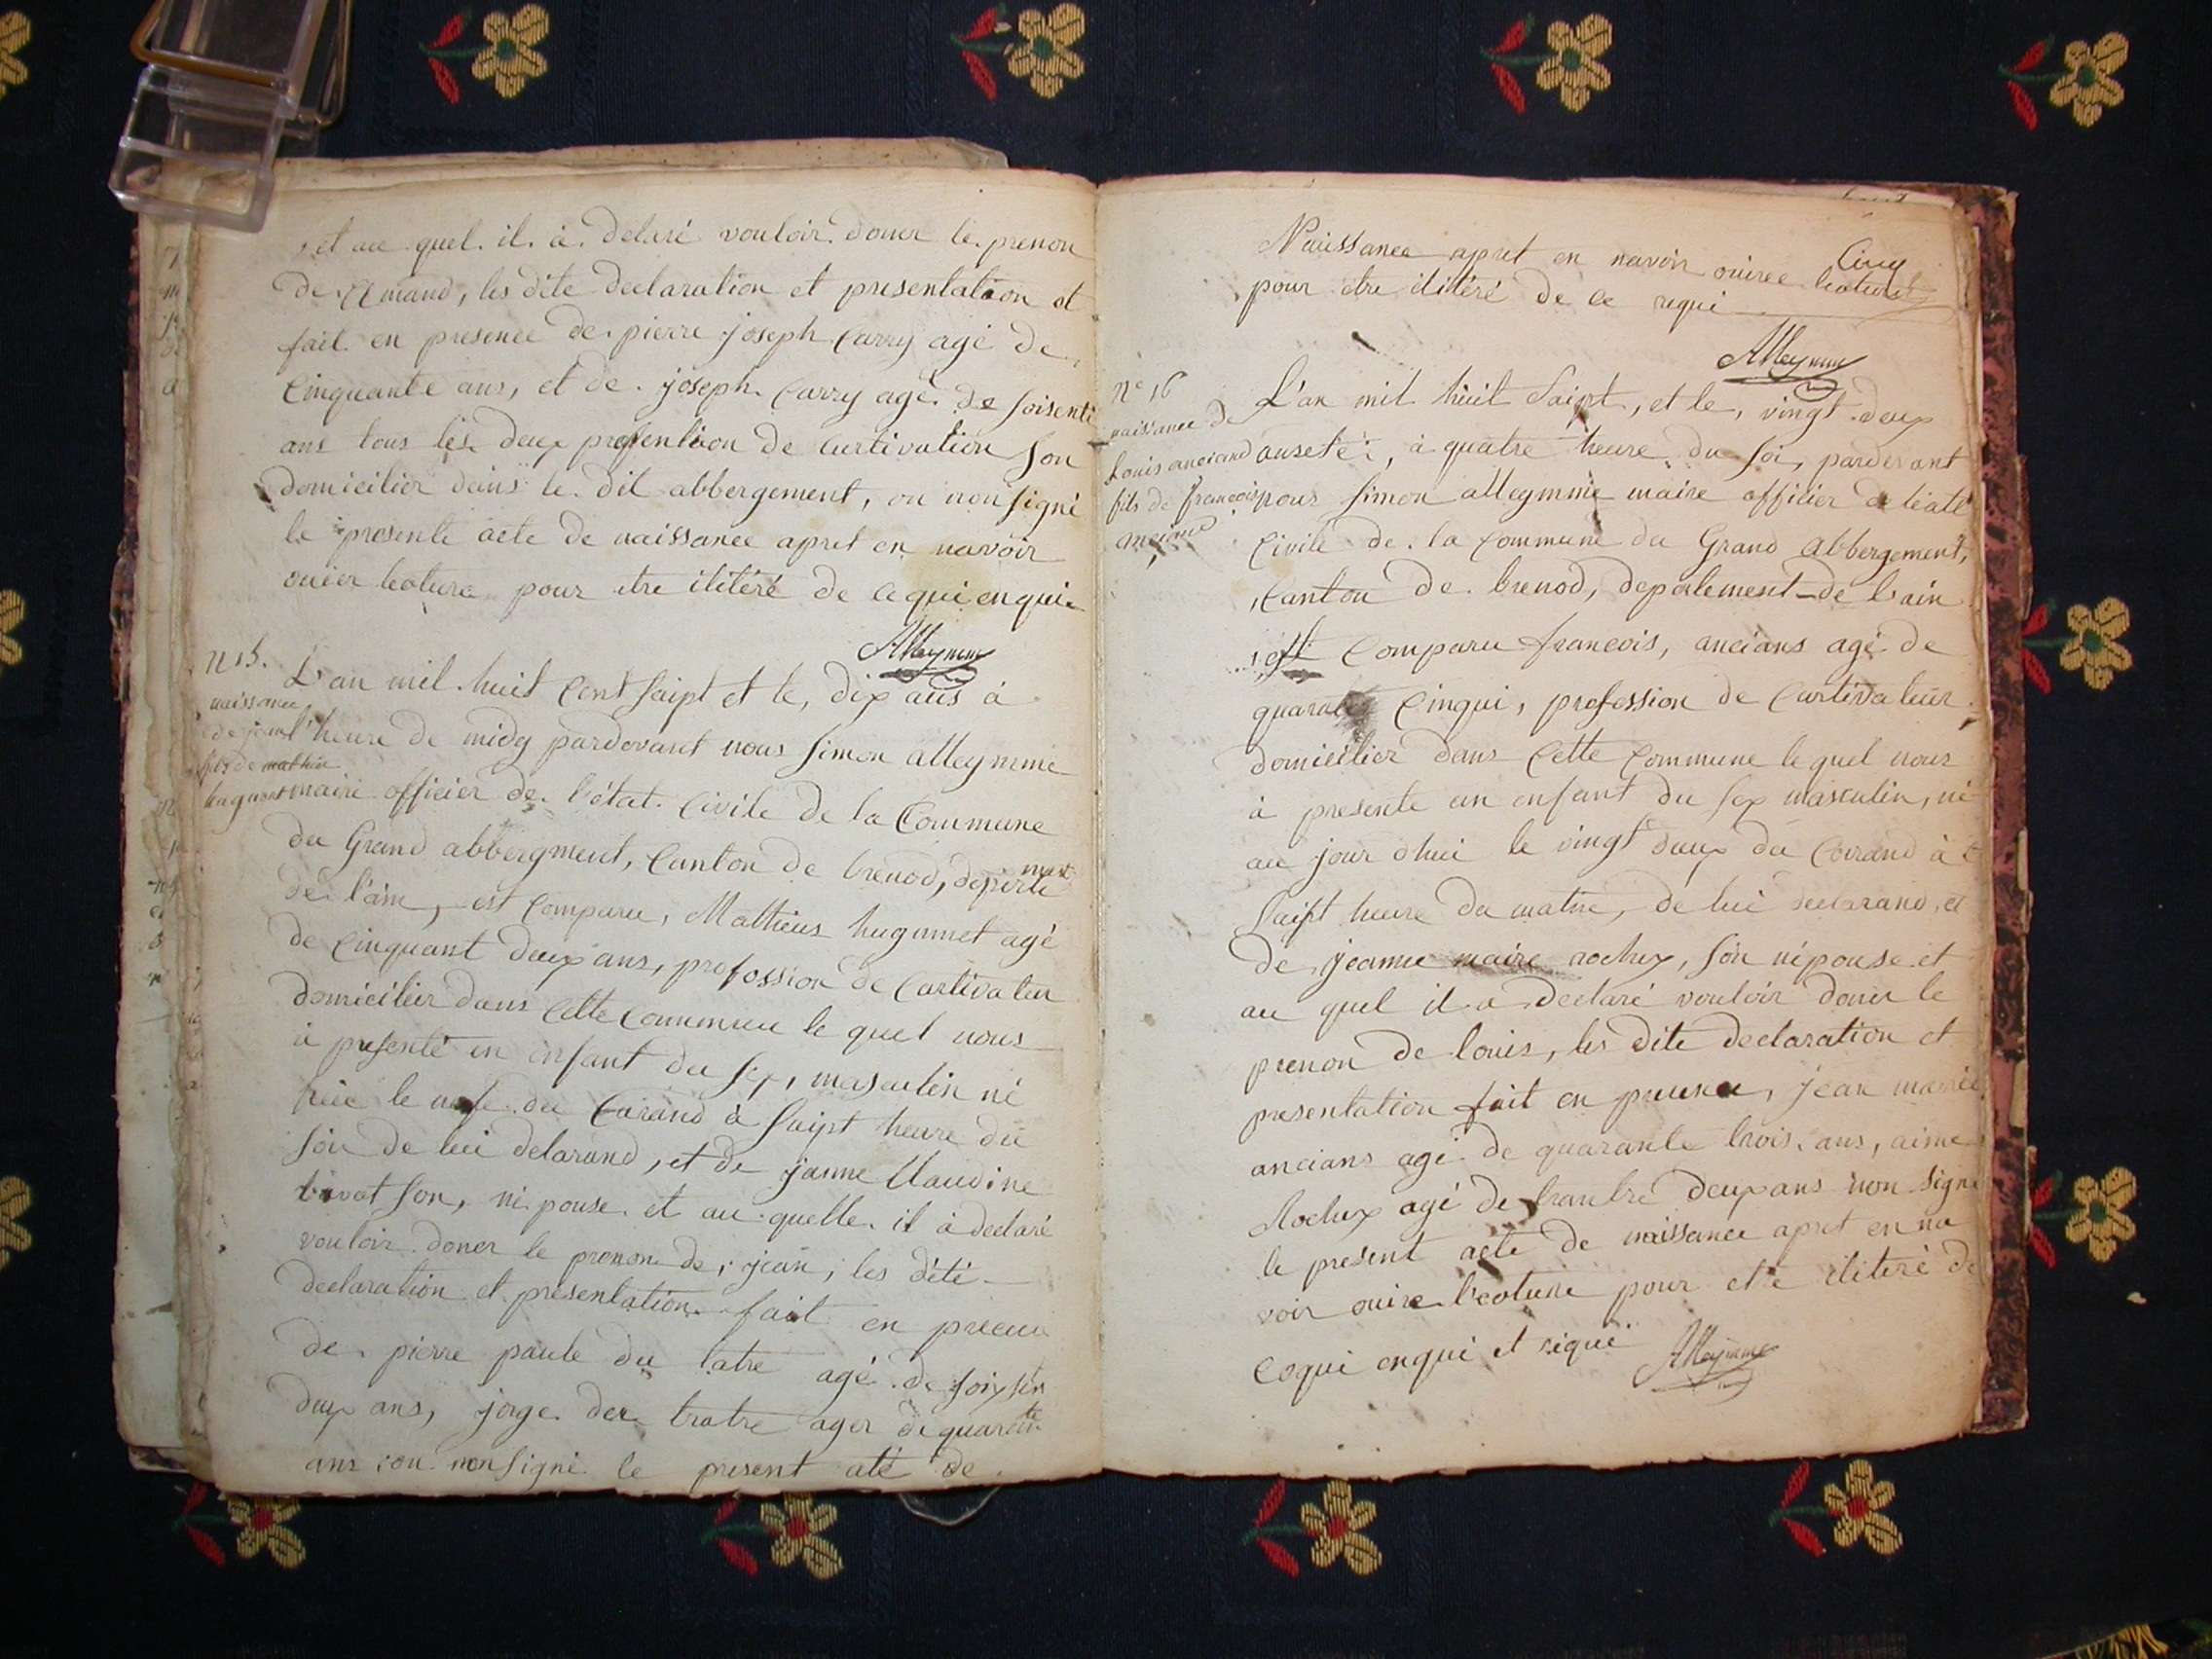 et au quel il à delaré vouloir doner le prenon
de Amand, les dite declaration et presentation et
fait en presence de pierre joseph Carry agé de
Cinquante ans, et de joseph Carry agé de soisente
ans tous les deux profention de curtivation son
domicilier dans le dit abbergement, on non signé
le presente acte de naissance apret en navoir
ouier leoture pour etre ilitéré de ce qui enqui
Alleymme
N 15.
naissance
de jean
fils de mathieu
hugonet
L'an mil huit Cent Saipt et le, dix aus à
l'heure de midy pardevant nous Simon alleymme
maire officier de l'état Civile de la Commune
du Grand abbergment, Canton de brenod, departe ment
de l'ain, est Comparu, Mathieus hugonnet agé
de Cinquant deux ans, profossion de Cartivateu
domicilier dans Cette Commune le quel nous
à presenté un enfant du sex, masculin né
hiée le neufe du Carand à Saipt heure du
soir de lui delarand, et de janne Claudine
bivat son, ni pouse et au quelle il à declaré
vouloir doner le pronon de, jean, les dété
declaration et présentation fait en presence
de pierre paule du latre agé de soixsen
deux ans, jorge der tratre ager de quarante
ans sou non signé le present até de
Cinq
Naissance apret en navoir ouiree leoture
pour etre ilitéré de ce requi
Alleymme
N° 16
naisance de
Louis anciand
fils de françois
anciand
L'an mil huit Saipt, et le, vingt deux
auseté, à quatre heure du soi, parderant
nous Simon alleymme maire officier de léatt
Civile de la Commune du Grand abbergement,
Canton de brenod, depatement de l'ain
est Comparu francois, ancians agé de
quarante Cinqui, profession de Curtivateur
domicilier dans Cette Commune le quel nous
à presente un enfant du sex masculin, né
au jour dhui le vingt deux du Courand à
Saipt heure du matin, de lui declarand, et
de jeanne maire rochex, son nipouse et
au quel il a declaré vouloir doner le
prenon de louis, les dite declaration et
presentation fait en presence, jean marie
ancians agé de quarante trois ans, aime
Rochex agé de trantre deux ans non signé
le present acte de naissance apret en na
voir ouire l'eoture pour etre ilitere de
Coqui enqui et riqui
Alleymme